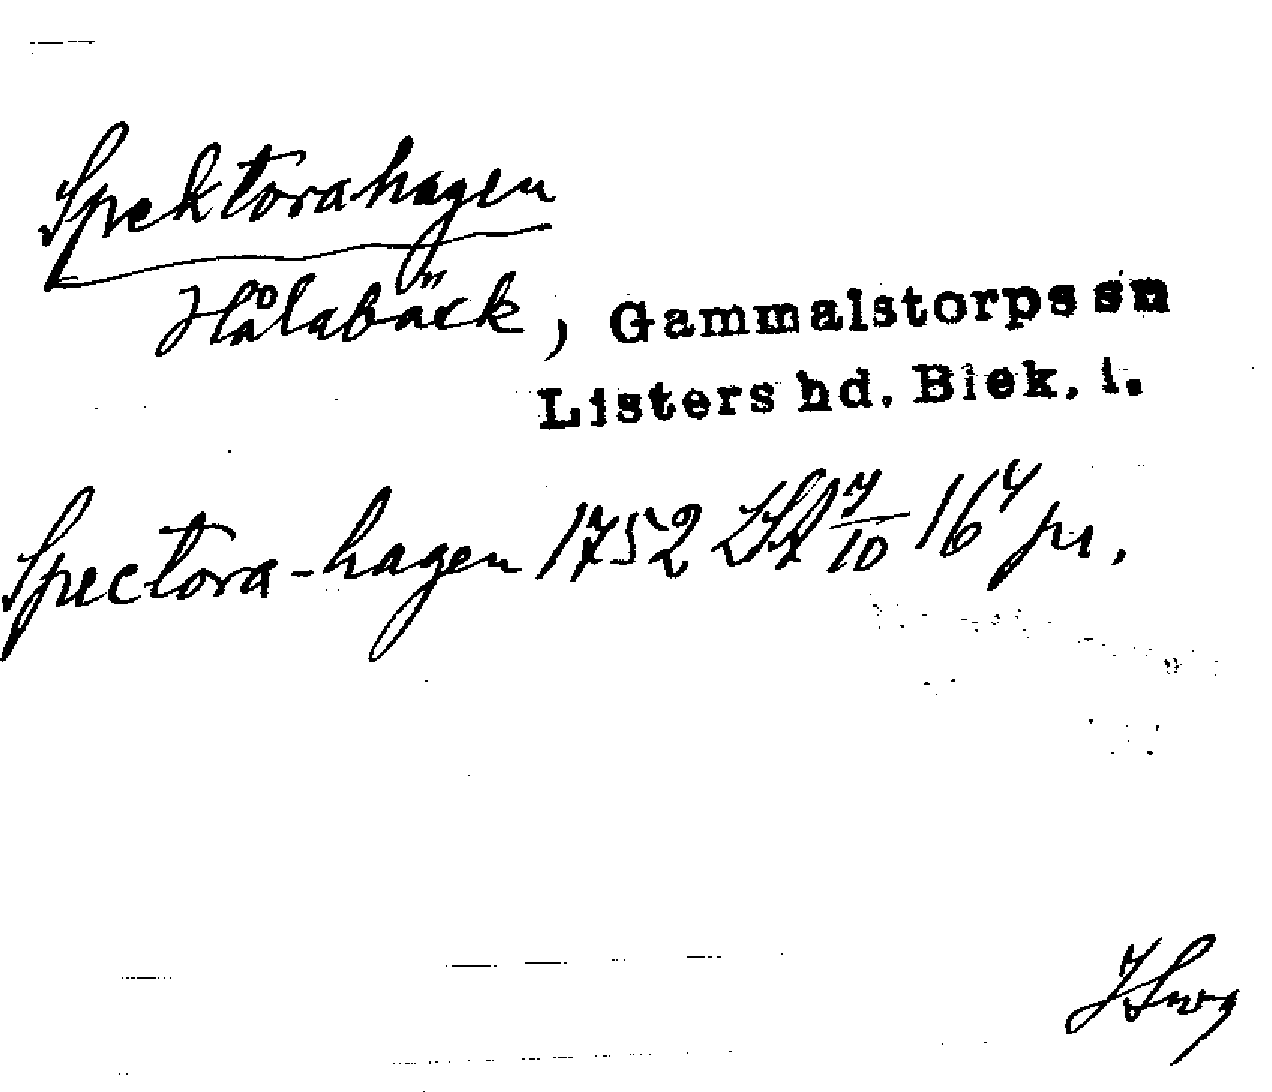 Spektorahagen
Hålabäck, Gammalstorps sn
Listers hd. Blek. l.
Spectora-hagen 1752 LSA 7/10 16⁴ pr.